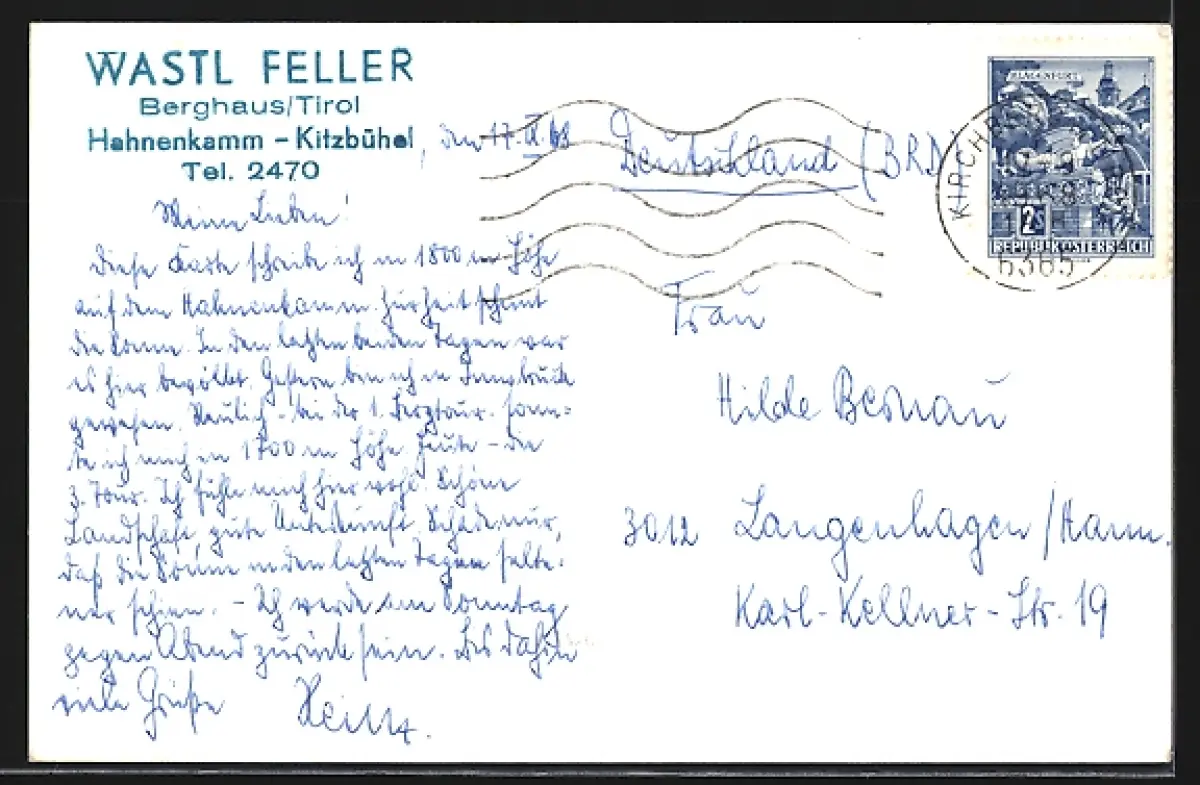 WASTL FELLER
Berghaus/Tirol
Hahnenkamm - Kitzbühel, den 17.IX.68
Tel. 2470
Meine Lieben!
Diese Karte schreibe ich in 1800 m Höhe
auf dem Hahnenkamm. Zur Zeit scheint
die Sonne. In den letzten beiden Tagen war
es hier bewölkt. Gestern bin ich in Innsbruck
gewesen. Neulich - bei der 1. Bergtour - sonn=
te ich mich in 1700 m Höhe. Heute - die
3. Tour. Ich fühle mich hier wohl. Schöne
Landschaft, gute Unterkunft. Schade nur,
daß die Sonne in den letzten Tagen selte-
ner schien. - Ich werde am Sonntag
gegen Abend zurück sein. Bis dahin
viele Grüße Heinz.
Deutschland (BRD)
KLAGENFURT
2S
REPUBLIK ÖSTERREICH
KIRCHB
6365
Frau
Hilde Bernau
3012 Langenhagen/Hann.
Karl-Kellner-Str. 19